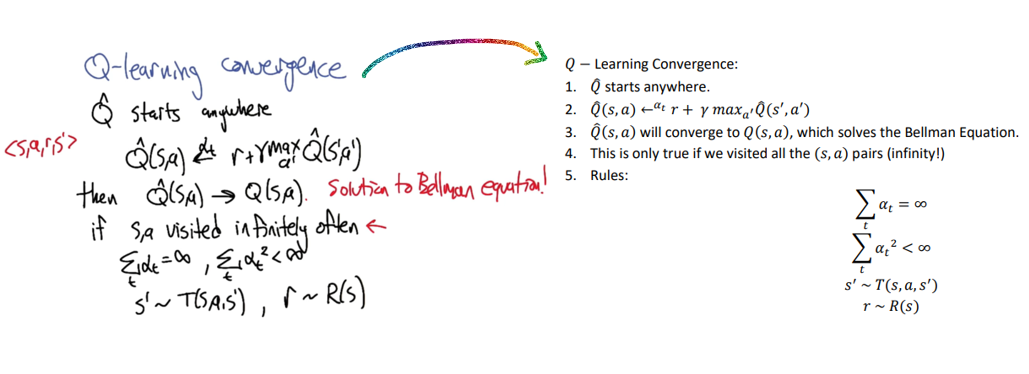 Q-learning convergence
Q̂ starts anywhere
<s,a,r,s'>
Q̂(s,a) ←αt r+γ max a' Q̂(s',a')
then Q̂(s,a) → Q(s,a). Solution to Bellman equation!
if s,a visited infinitely often ←
∑t αt = ∞ , ∑t αt² < ∞
s' ~ T(s,a,s') , r ~ R(s)
Q – Learning Convergence:
1. Q̂ starts anywhere.
2. Q̂(s, a) ←αt r + γ maxa′Q̂(s′, a′)
3. Q̂(s, a) will converge to Q(s, a), which solves the Bellman Equation.
4. This is only true if we visited all the (s, a) pairs (infinity!)
5. Rules:
∑t αt = ∞
∑t αt² < ∞
s′ ~ T(s, a, s′)
r ~ R(s)